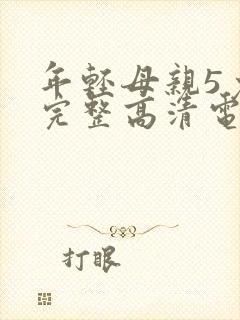 年輕母親5
完整高清電
打眼